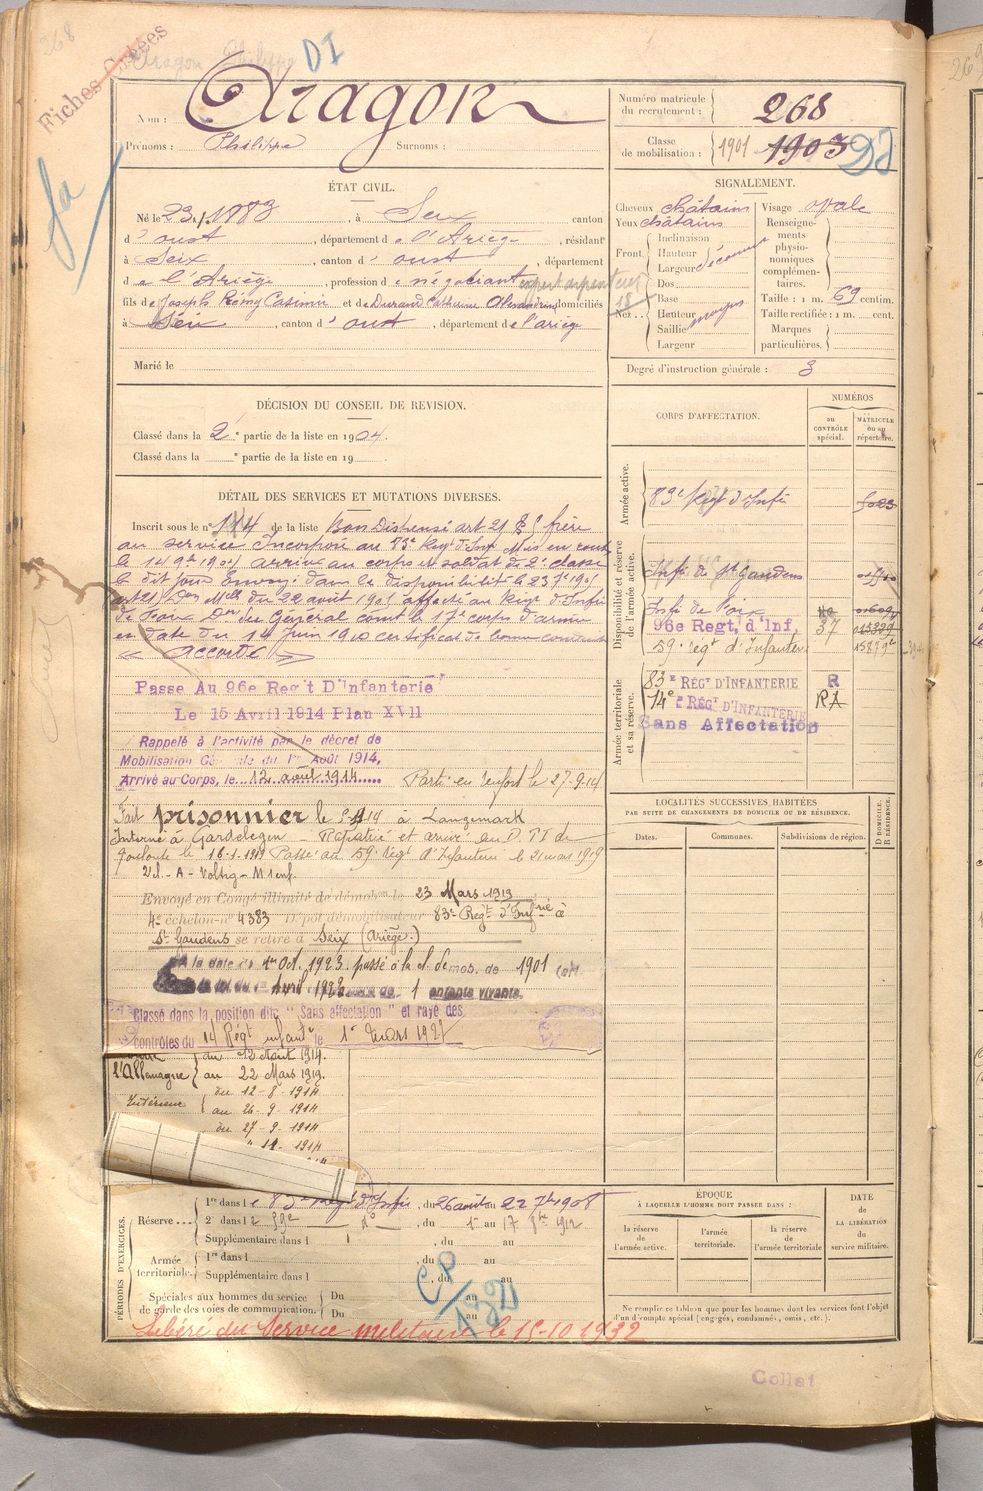 268
Aragon Philippe
DI
Fiches Créées
Nom : Aragon
Prénoms : Philippe Surnoms :
Numéro matricule du recrutement : 268
Classe de mobilisation : 1901 1903
ÉTAT CIVIL.
Né le 23 1883, à Seix canton
d'oust, département de l'Ariège, résidant
à Seix, canton d'oust, département
de l'Ariège, profession de négociant expert arpenteur
fils de Joseph Rémy Casimir et de Durand Catherine Alexandrine domiciliés
à Seix, canton d'oust, département de l'ariège
Marié le
SIGNALEMENT.
Cheveux châtains Visage ovale
Yeux châtains
Front Inclinaison Hauteur Largeur
Nez Dos Base Hauteur Saillie Largeur moyen
Renseignements physionomiques complémentaires.
Taille : 1 m. 69 centim.
Taille rectifiée : 1 m. cent.
Marques particulières.
Degré d'instruction générale : 3
DÉCISION DU CONSEIL DE REVISION.
Classé dans la 2e partie de la liste en 1904.
Classé dans la e partie de la liste en 190
DÉTAIL DES SERVICES ET MUTATIONS DIVERSES.
Inscrit sous le n° 114 de la liste Bon Dispensé art 21 frère
au service Incorporé au 83e Regt d'Inf Mis en route
le 14 9bre 1904 arrivé au corps et soldat de 2e classe
le dit jour Envoyé dans la disponibilité le 23 7bre 1905
art 21 Don Mlle du 22 août 1905 affecté au Régt d'Infie
de Foix Don du Général comt le 17e corps d'armée
en date du 14 Juin 1910 certificat de bonne conduite
" accordé "
Passe Au 96e Reg't D'Infanterie
Le 15 Avril 1914 Plan XVII
Rappelé à l'activité par le décret de
Mobilisation Générale du 1er Août 1914,
Arrivé au Corps, le 12 août 1914 Parti en renfort le 27-9-14
Fait prisonnier le à Langemark
Interné à Gardelegen - Rapatrié et arrivé au D.T.I de
Toulouse le 16-1-1919 Passé au 59e Régt d'Infanterie le 21 mars 1919
Envoyé en Congé illimité de démobon le 23 Mars 1919
4e échelon n° 4383 Dépôt démobilisateur 83e Regt d'Infrie à
St Gaudens se retire à Seix (Ariège.)
A la date du 1er Oct. 1923 passé à la cl. de mob. de 1901
Avril 1923 1 enfants vivants.
Classé dans la position dite "Sans affectation" et rayé des
contrôles du 14 Régt infantie le 1er Mars 1927
l'Allemagne du 12 Août 1914.
au 22 Mars 1919.
Intérieur du 12-8-1914
au 26-9-1914
du 27-9-1914
CORPS D'AFFECTATION.
NUMÉROS
au CONTRÔLE spécial. MATRICULE ou au répertoire.
Armée active.
83e Régt d'Infie
Disponibilité et réserve de l'armée active.
Infie de St Gaudens
Infie de Foix
96e Regt, d'Inf, 37 015399
59e régt d'Infanterie 15879
Armée territoriale et sa réserve.
83E RÉGT D'INFANTERIE R
14e RÉGT D'INFANTERIE RA
Sans Affectation
LOCALITÉS SUCCESSIVES HABITÉES
PAR SUITE DE CHANGEMENTS DE DOMICILE OU DE RÉSIDENCE.
Dates. Communes. Subdivisions de région. D DOMICILE. R RÉSIDENCE.
PÉRIODES D'EXERCICES.
Réserve... 1re dans le 83e Régt d'Infie, du 26 août au 22 7bre 1908
2e dans le 59e do, du 1er au 17 1912
Supplémentaire dans l , du au
Armée territoriale. 1re dans l , du au
Supplémentaire dans l , du au
Spéciales aux hommes du service de garde des voies de communication. Du au
Du au
CP
Libéré du Service militaire le 15-10-1932
ÉPOQUE
À LAQUELLE L'HOMME DOIT PASSER DANS :
la réserve de l'armée active. l'armée territoriale. la réserve de l'armée territoriale
DATE DE LA LIBÉRATION du service militaire.
Ne remplir ce tableau que pour les hommes dont les services font l'objet
d'un décompte spécial (engagés, condamnés, omis, etc.).
Collat